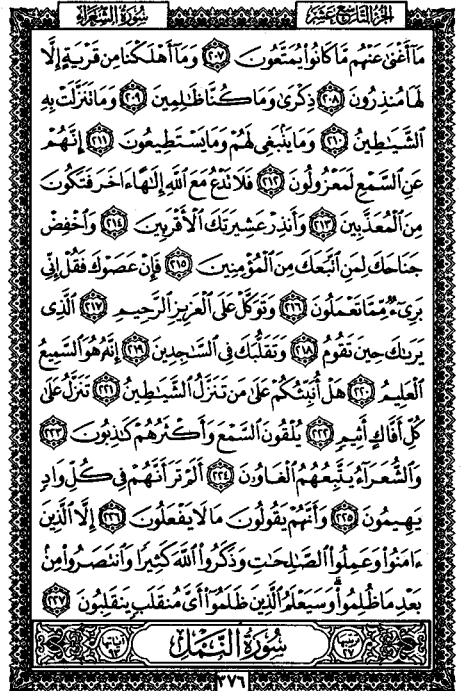 سُورَةُ الشُّعَرَاءِ الجُزءُ التَّاسِعَ عَشَرَ
مَآ أَغْنَىٰ عَنْهُم مَّا كَانُوا۟ يُمَتَّعُونَ ٢٠٧ وَمَآ أَهْلَكْنَا مِن قَرْيَةٍ إِلَّا
لَهَا مُنذِرُونَ ٢٠٨ ذِكْرَىٰ وَمَا كُنَّا ظَٰلِمِينَ ٢٠٩ وَمَا تَنَزَّلَتْ بِهِ
ٱلشَّيَٰطِينُ ٢١٠ وَمَا يَنۢبَغِى لَهُمْ وَمَا يَسْتَطِيعُونَ ٢١١ إِنَّهُمْ
عَنِ ٱلسَّمْعِ لَمَعْزُولُونَ ٢١٢ فَلَا تَدْعُ مَعَ ٱللَّهِ إِلَٰهًا ءَاخَرَ فَتَكُونَ
مِنَ ٱلْمُعَذَّبِينَ ٢١٣ وَأَنذِرْ عَشِيرَتَكَ ٱلْأَقْرَبِينَ ٢١٤ وَٱخْفِضْ
جَنَاحَكَ لِمَنِ ٱتَّبَعَكَ مِنَ ٱلْمُؤْمِنِينَ ٢١٥ فَإِنْ عَصَوْكَ فَقُلْ إِنِّى
بَرِىٓءٌ مِّمَّا تَعْمَلُونَ ٢١٦ وَتَوَكَّلْ عَلَى ٱلْعَزِيزِ ٱلرَّحِيمِ ٢١٧ ٱلَّذِى
يَرَىٰكَ حِينَ تَقُومُ ٢١٨ وَتَقَلُّبَكَ فِى ٱلسَّٰجِدِينَ ٢١٩ إِنَّهُۥ هُوَ ٱلسَّمِيعُ
ٱلْعَلِيمُ ٢٢٠ هَلْ أُنَبِّئُكُمْ عَلَىٰ مَن تَنَزَّلُ ٱلشَّيَٰطِينُ ٢٢١ تَنَزَّلُ عَلَىٰ
كُلِّ أَفَّاكٍ أَثِيمٍ ٢٢٢ يُلْقُونَ ٱلسَّمْعَ وَأَكْثَرُهُمْ كَٰذِبُونَ ٢٢٣
وَٱلشُّعَرَآءُ يَتَّبِعُهُمُ ٱلْغَاوُۥنَ ٢٢٤ أَلَمْ تَرَ أَنَّهُمْ فِى كُلِّ وَادٍ
يَهِيمُونَ ٢٢٥ وَأَنَّهُمْ يَقُولُونَ مَا لَا يَفْعَلُونَ ٢٢٦ إِلَّا ٱلَّذِينَ
ءَامَنُوا۟ وَعَمِلُوا۟ ٱلصَّٰلِحَٰتِ وَذَكَرُوا۟ ٱللَّهَ كَثِيرًا وَٱنتَصَرُوا۟ مِنۢ
بَعْدِ مَا ظُلِمُوا۟ ۗ وَسَيَعْلَمُ ٱلَّذِينَ ظَلَمُوٓا۟ أَىَّ مُنقَلَبٍ يَنقَلِبُونَ ٢٢٧
سُورَةُ النَّمْلِ
٣٧٦